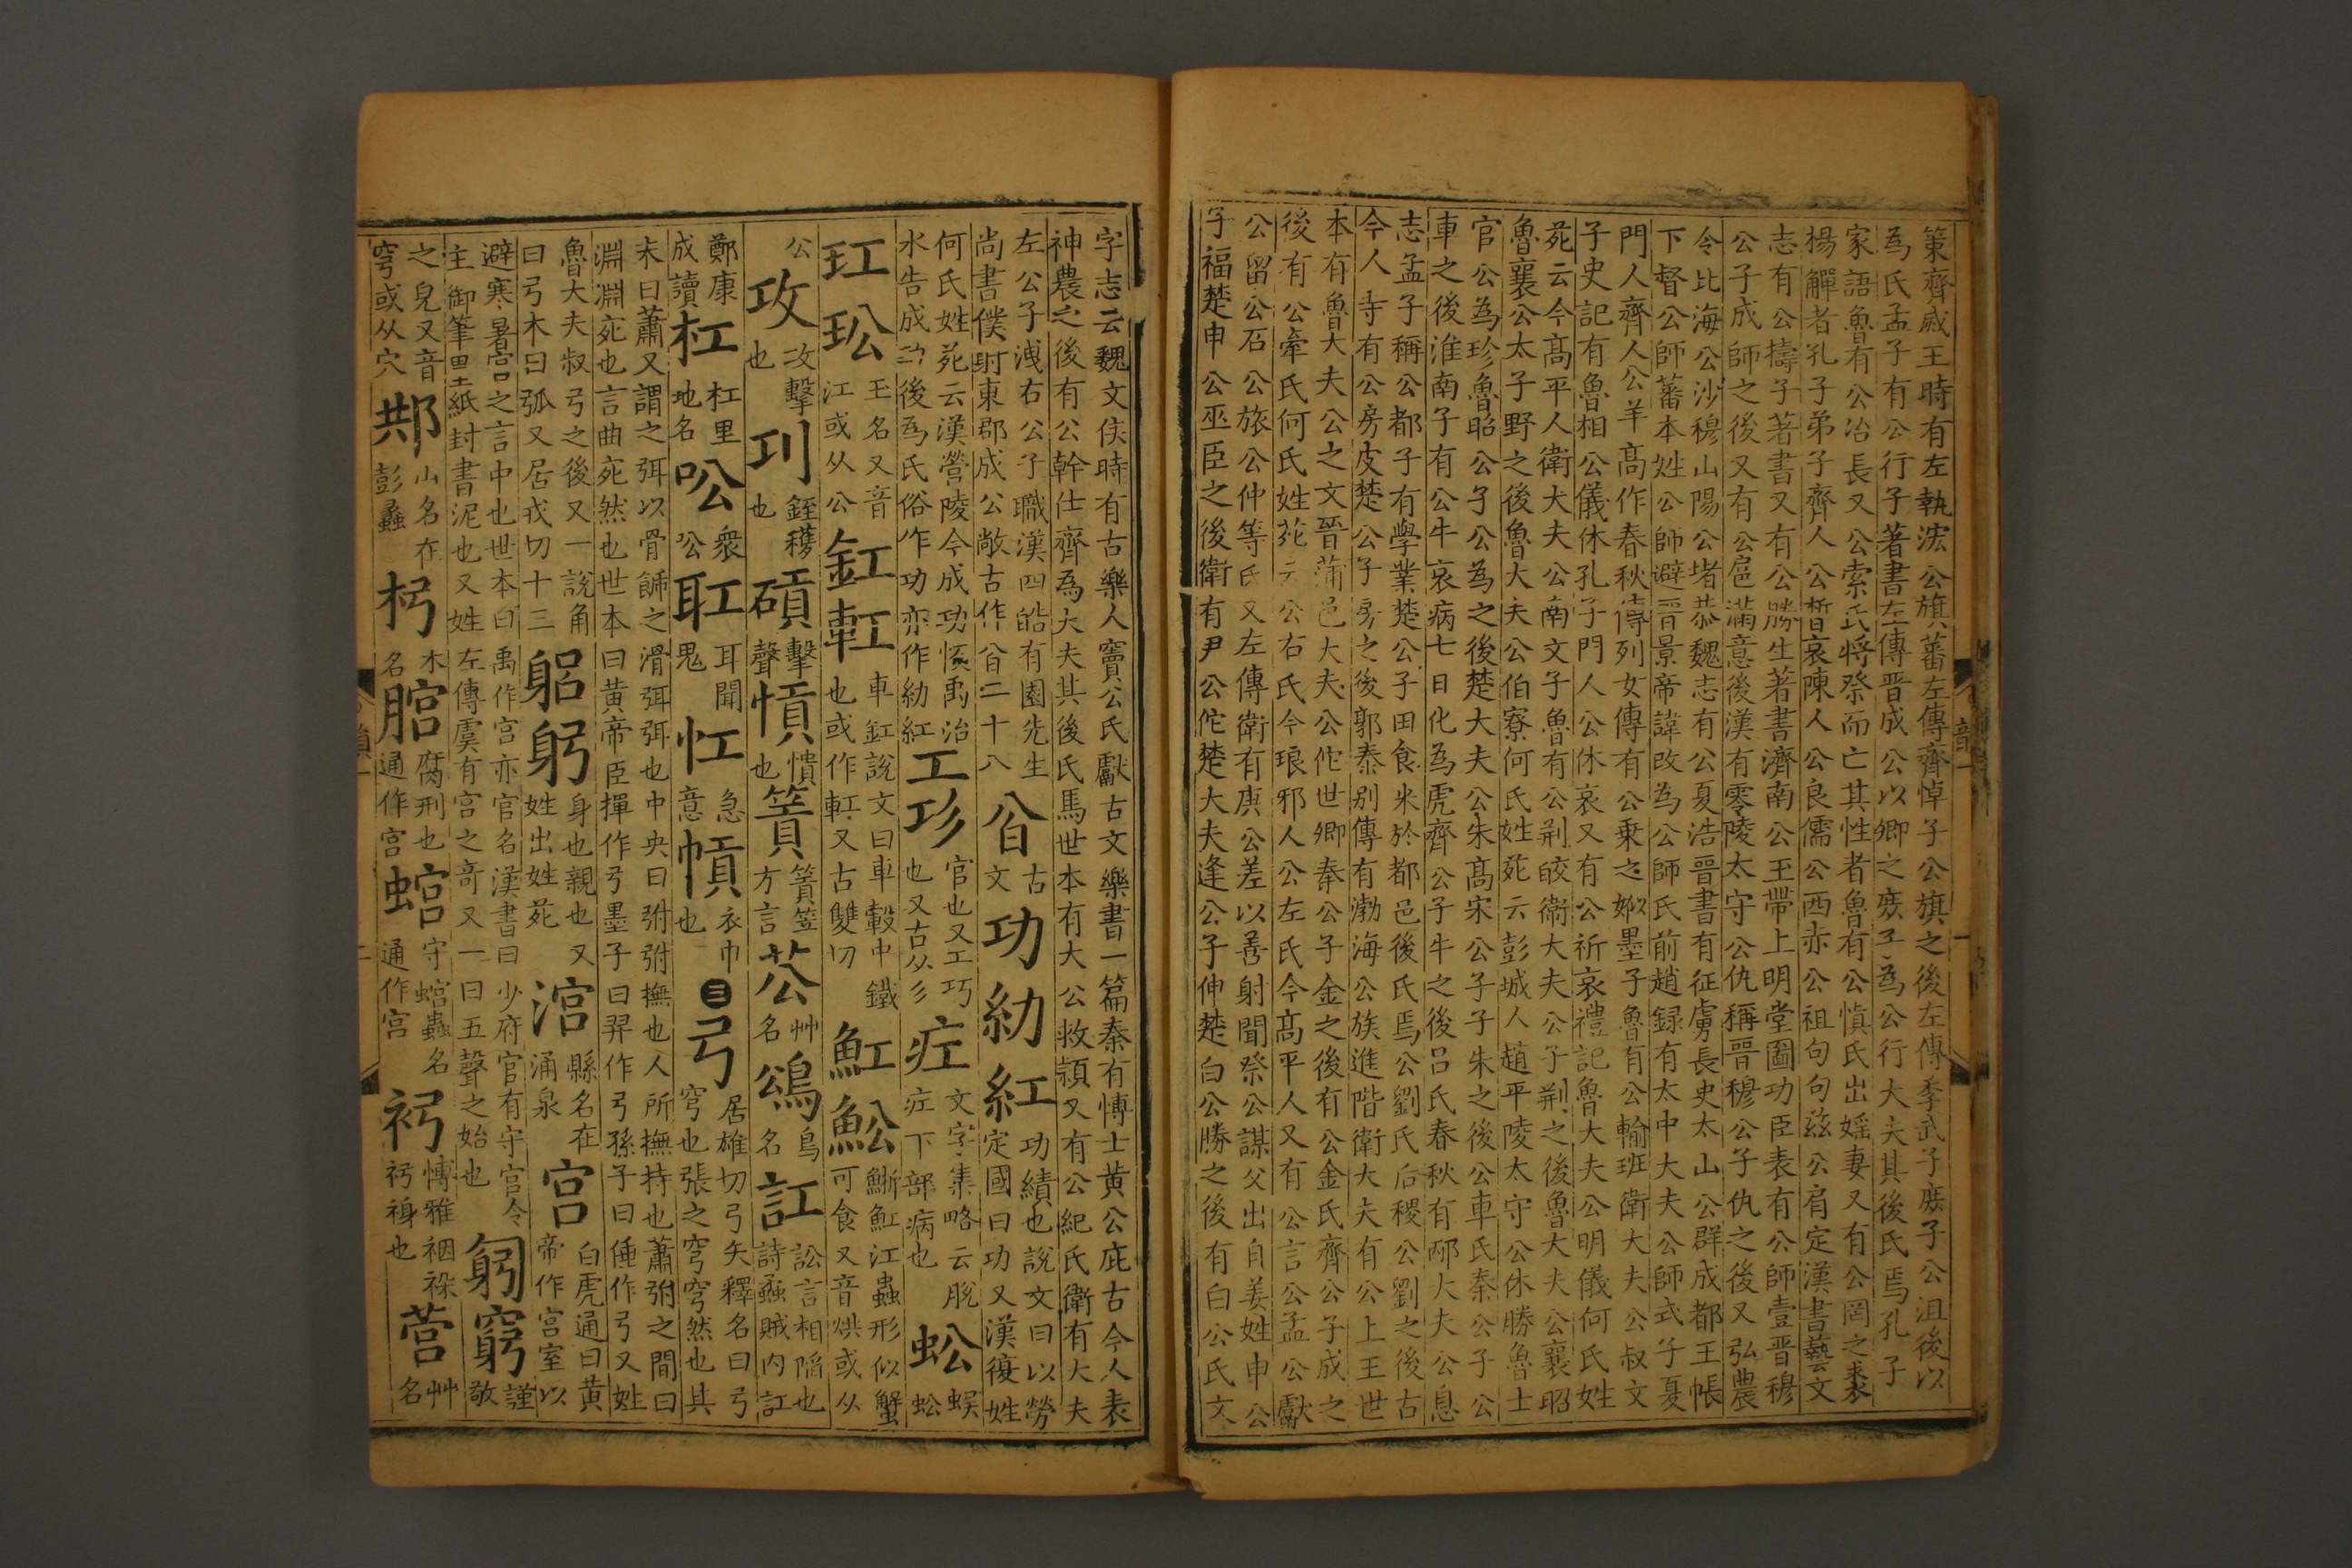 策齊威王時有左執法公旗蕃左傳齊悼子公旗之後左傳季武子庶子公沮後以
為氏孟子有公行子著書左傳晉成公以卿之庶子為公行大夫其後氏焉孔子
家語魯有公冶長又公索氏將祭而亡其牲者魯有公慎氏出婬妻又有公罔之裘
揚觶者孔子弟子齊人公晳哀陳人公良儒公西赤公祖句句茲公肩定漢書藝文
志有公檮子著書又有公勝生著書濟南公王帶上明堂圖功臣表有公師壹晉穆
公子成師之後又有公扈滿意後漢有零陵太守公仇稱晉穆公子仇之後又弘農
令北海公沙穆山陽公堵恭魏志有公夏浩晉書有征虜長史太山公群成都王帳
下督公師蕃本姓公師避晉景帝諱改為公師氏前趙錄有太中大夫公師式子夏
門人齊人公羊高作春秋傳列女傳有公乗之姒墨子魯有公輸班衛大夫公叔文
子史記有魯相公儀休孔子門人公休哀又有公祈哀禮記魯大夫公明儀何氏姓
苑云今高平人衛大夫公南文子魯有公荊皎衛大夫公子荊之後魯大夫公襄昭
魯襄公太子野之後魯大夫公伯寮何氏姓苑云彭城人趙平陵太守公休勝魯士
官公為珍魯昭公子公為之後楚大夫公朱高宋公子子朱之後公車氏秦公子公
車之後淮南子有公牛哀病七日化為虎齊公子牛之後呂氏春秋有邴大夫公息
志孟子稱公都子有學業楚公子田食米於都邑後氏焉公劉氏后稷公劉之後古
今人寺有公房皮楚公子房之後郭泰別傳有渤海公族進階衛大夫有公上王世
本有魯大夫公之文晉蒲邑大夫公佗世卿奉公子金之後有公金氏齊公子成之
後有公牽氏何氏姓苑云公右氏今琅邪人公左氏今高平人又有公言公孟公獻
公留公石公旅公仲等氏又左傳衛有庾公差以善射聞祭公謀父出自姜姓申公
子福楚申公巫臣之後衛有尹公佗楚大夫逢公子伸楚白公勝之後有白公氏文
字志云魏文侯時有古樂人竇公氏獻古文樂書一篇秦有博士黃公庇古今人表
神農之後有公幹仕齊為大夫其後氏焉世本有大公救潁又有公紀氏衛有大夫
左公子洩右公子職漢四皓有園先生
尚書僕射東郡成公敞古作㕣二十八
㕣
古文
功糼紅
功績也說文曰以勞
定國曰功又漢復姓
何氏姓苑云漢營陵今成功恢禹治
水告成功後為氏俗作功亦作糼紅
工㣉
官也又工巧
也又古从彡
疘
文字集略云脫
疘下部病也
蚣
蜈
蚣
玒玜
玉名又音
江或从公
釭䡌
車釭說文曰車轂中鐵
也或作䡌又古雙切
魟䰸
鰤魟江蟲形似蟹
可食又音烘或从
公
攻
攻擊
也
㓚
銍穫
也
碽
擊
聲
愩
憒
也
篢
篢笠
方言
䓔
艸
名
鴿
鳥
名
訌
訟言相陷也
詩蟊賊內訌
鄭康
成讀
杠
杠里
地名
吆
衆
公
耾
耳聞
鬼
㤨
急
意
幊
衣巾
也
三弓
居雄切弓矢釋名曰弓
穹也張之穹穹然也其
末曰蕭又謂之弭以骨飾之滑弭弭也中央曰弣弣撫也人所撫持也蕭弣之間曰
淵淵宛也言曲宛然也世本曰黃帝臣揮作弓墨子曰羿作弓孫子曰倕作弓又姓
魯大夫叔弓之後又一說角
曰弓木曰弧又居戎切十三
躳躬
身也親也又
姓出姓苑
涫
縣名在
涌泉
宮
白虎通曰黃
帝作宮室以
避寒暑宮之言中也世本曰禹作宮亦官名漢書曰少府官有守宮令
主御筆墨紙封書泥也又姓左傳虞有宮之奇又一曰五聲之始也
匑竆
謹
敬
之皃又音
穹或从穴
䢼
山名在
彭蠡
杛
木
名
䐬
腐刑也
通作宮
䗔
守䗔蟲名
通作宮
䘑
博雅裀䘸
䘑襑也
䓖
艸
名